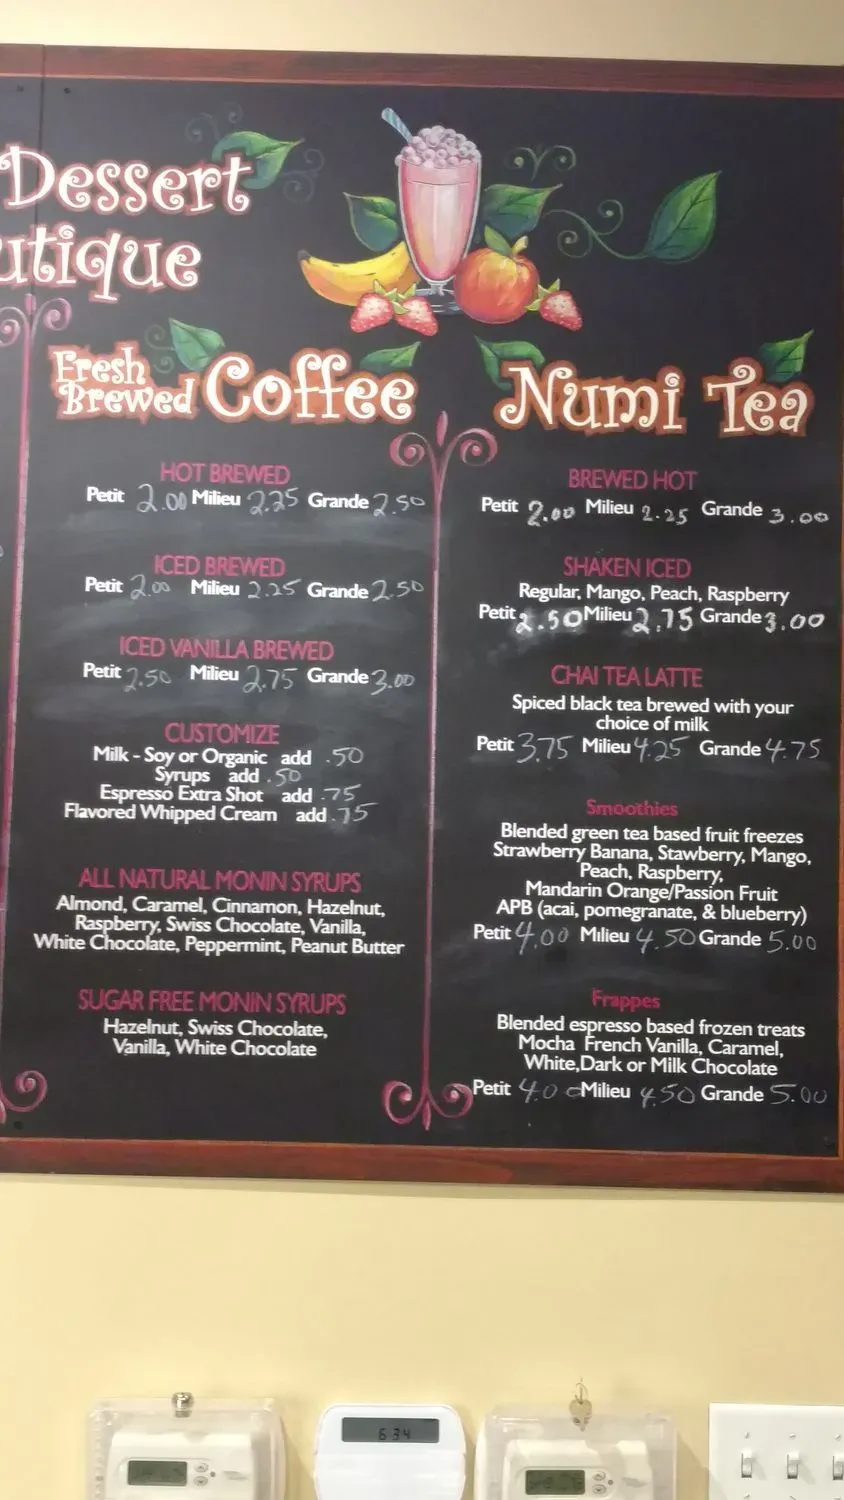 Dessert
utique
Fresh
Brewed Coffee
HOT BREWED
Petit 2.00 Milieu 2.25 Grande 2.50
ICED BREWED
Petit 2.00 Milieu 2.25 Grande 2.50
ICED VANILLA BREWED
Petit 2.50 Milieu 2.75 Grande 3.00
CUSTOMIZE
Milk - Soy or Organic add .50
Syrups add .50
Espresso Extra Shot add .75
Flavored Whipped Cream add .75
ALL NATURAL MONIN SYRUPS
Almond, Caramel, Cinnamon, Hazelnut,
Raspberry, Swiss Chocolate, Vanilla,
White Chocolate, Peppermint, Peanut Butter
SUGAR FREE MONIN SYRUPS
Hazelnut, Swiss Chocolate,
Vanilla, White Chocolate
Numi Tea
BREWED HOT
Petit 2.00 Milieu 2.25 Grande 3.00
SHAKEN ICED
Regular, Mango, Peach, Raspberry
Petit 2.50 Milieu 2.75 Grande 3.00
CHAI TEA LATTE
Spiced black tea brewed with your
choice of milk
Petit 3.75 Milieu 4.25 Grande 4.75
Smoothies
Blended green tea based fruit freezes
Strawberry Banana, Stawberry, Mango,
Peach, Raspberry,
Mandarin Orange/Passion Fruit
APB (acai, pomegranate, & blueberry)
Petit 4.00 Milieu 4.50 Grande 5.00
Frappes
Blended espresso based frozen treats
Mocha French Vanilla, Caramel,
White,Dark or Milk Chocolate
Petit 4.00 Milieu 4.50 Grande 5.00
6 34